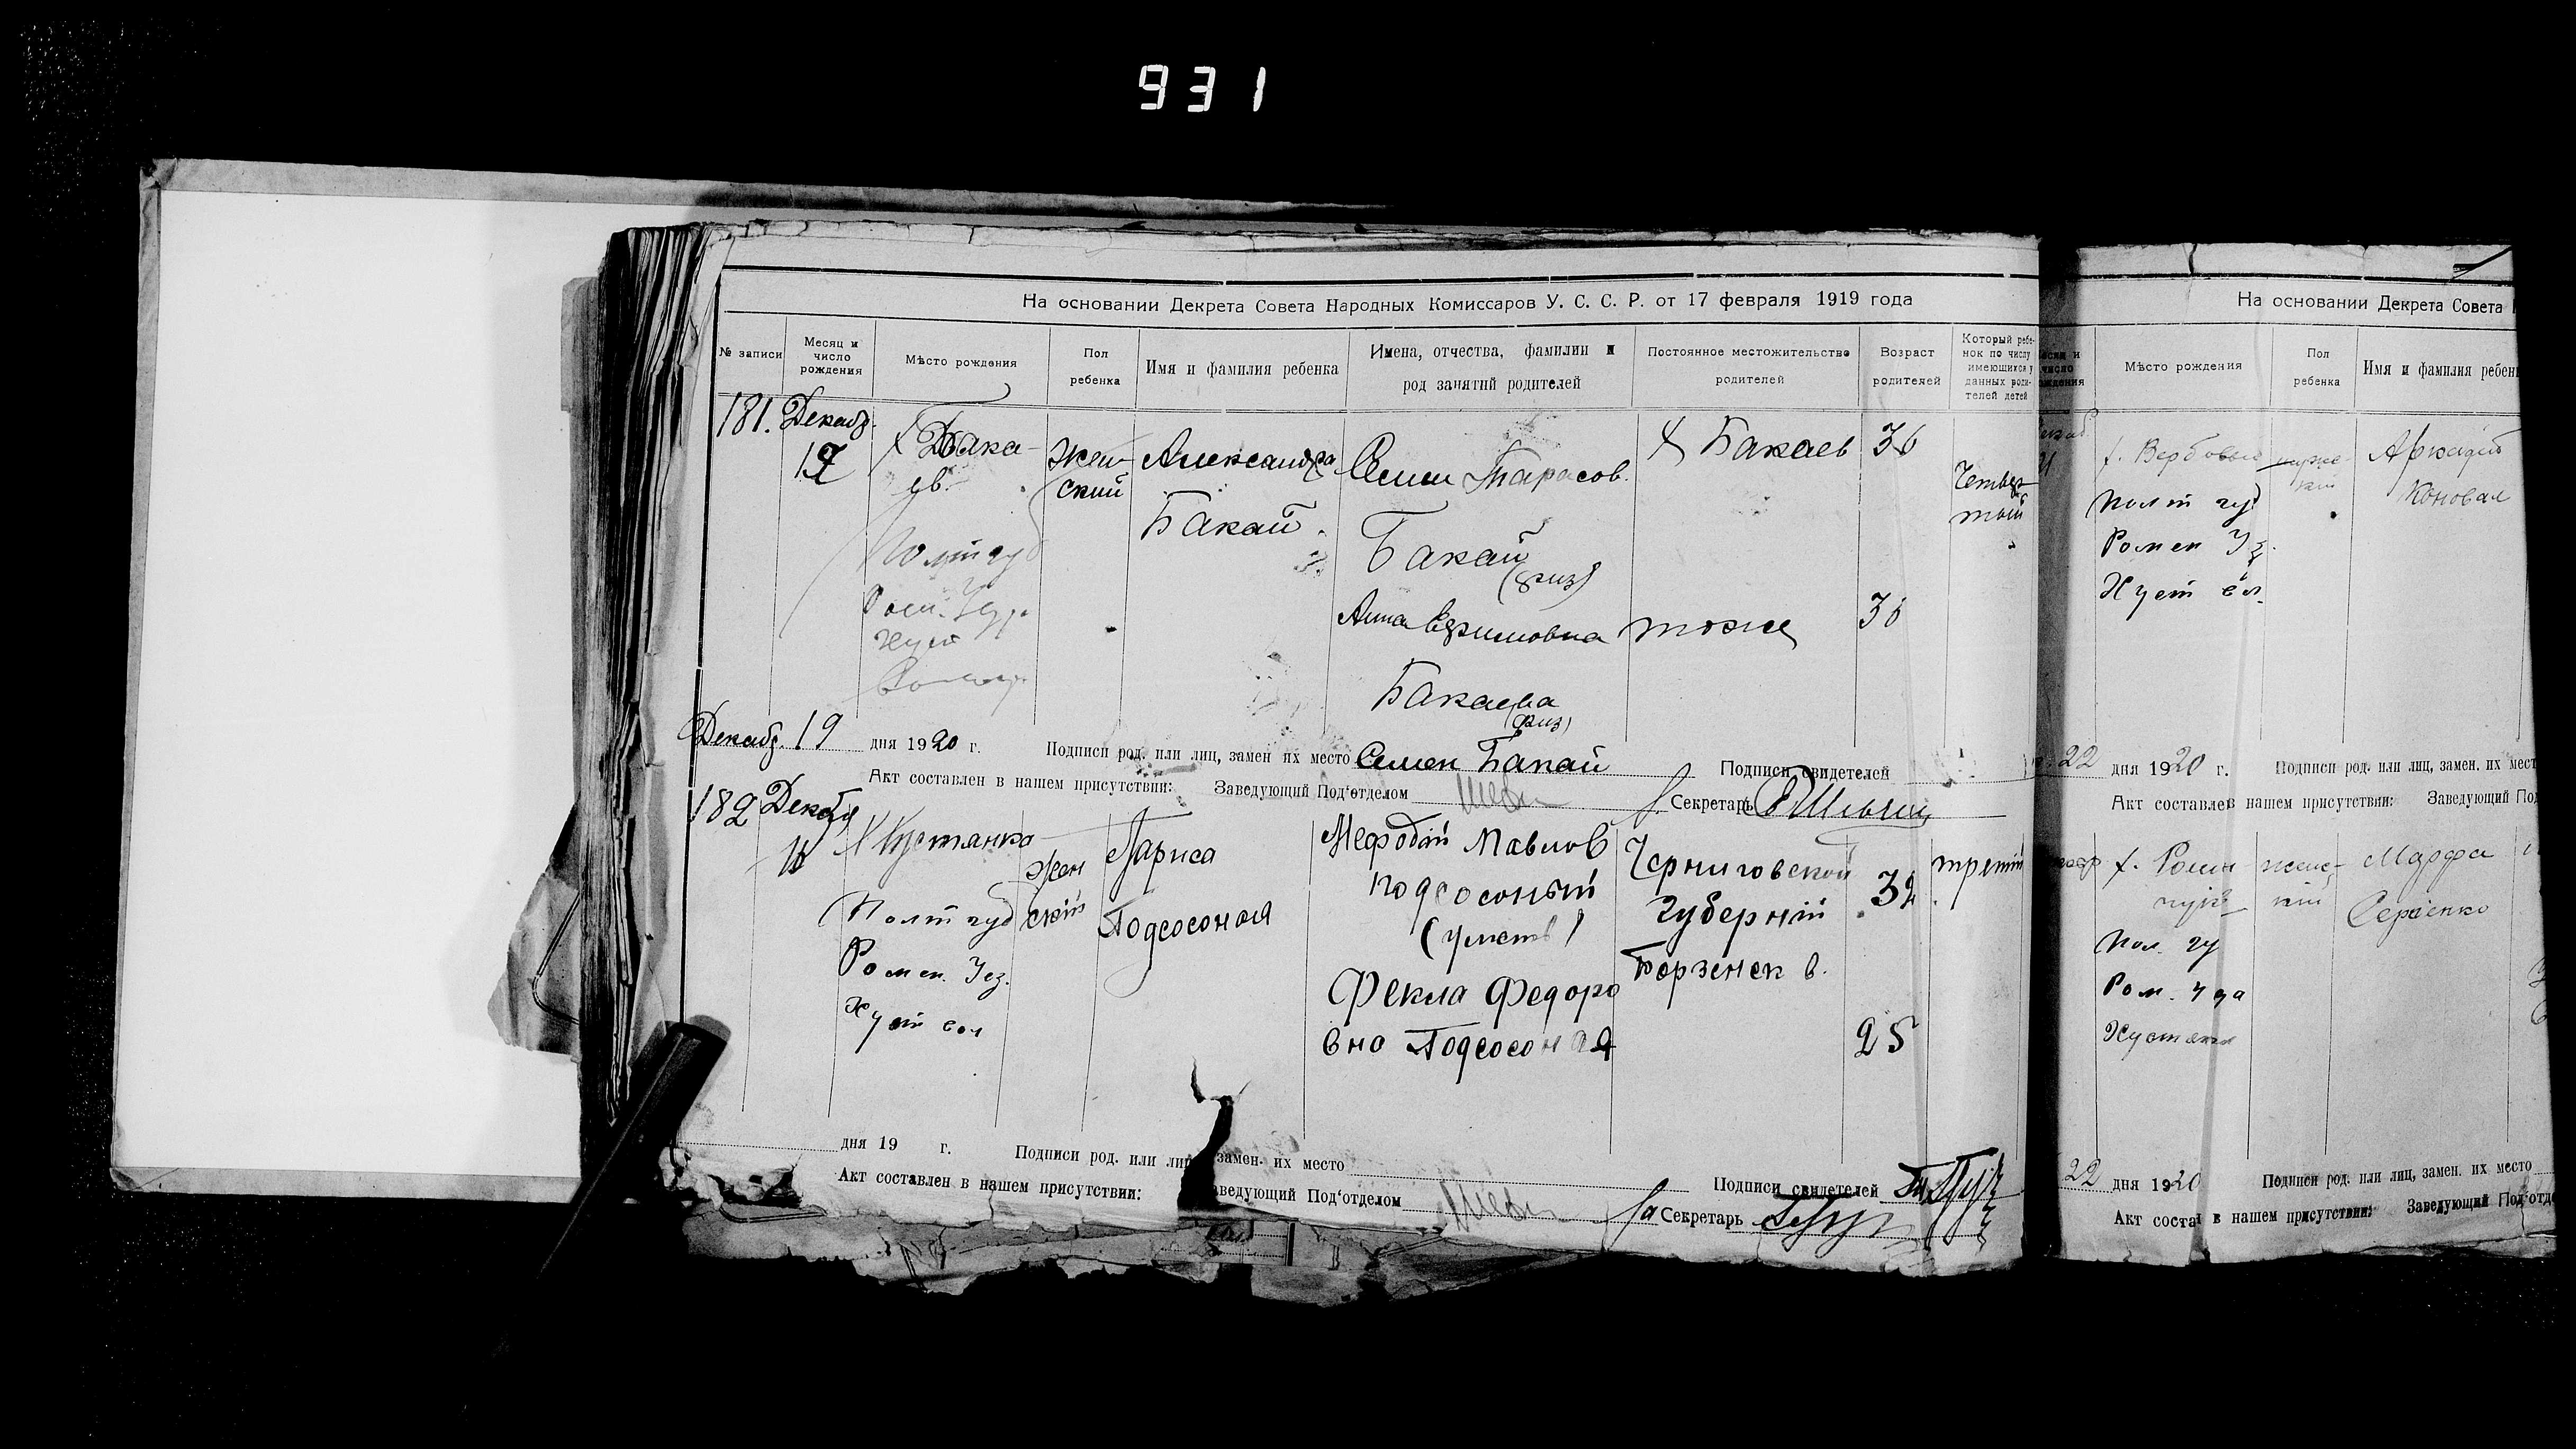 931
На основании Декрета Совета Народных Комиссаров У. С. С. Р. от 17 февраля 1919 года
№ записи
Месяц и
число
рождения
Мѣсто рождения
Пол
ребенка
Имя и фамилия ребенка
Имена, отчества, фамилии и
род занятий родителей
Постоянное местожительство
родителей
Возраст
родителей
Который ребе-
нок по числу
имеющихся у
данных роди-
телей детей
181. Декабр.
Бака-
ев
Жен-
ский
Александра
Бакай
Семен Тарасов.
Бакай
Анна Ефимовна
Бакаева
Х Бакаев
тоже
36
36
Четвер-
тый
Декабр. 19 дня 1920 г. Подписи род. или лиц, замен их место Семен Бакай Подписи свидетелей
Акт составлен в нашем присутствии: Заведующий Под‘отделом Секретарь
182 Декабря
Х Хустянка
Полт губ
Ромен. Уез.
Хуст вол
Жен
скій
Лариса
Подсосоная
Мефодій Павлов
Подсосоный
Фекла Федоро
вна Подсосоная
Черниговской
Губерній
Борзенск в.
32
25
третій
дня 19 г. Подписи род. или лиц замен. их место Подписи свидетелей
Акт составлен в нашем присутствии: аведующий Под‘отделом За Секретарь
На основании Декрета Совета
Мѣсто рождения
Пол
ребенка
Имя и фамилия ребен
х. Вербовый
Полт губ
Ромен Уз.
Хуст вол.
Аркадій
Коновал
22 дня 1920 г. Подписи род. или лиц, замен. их мест
Акт составлен в нашем присутствии: Заведующий Под
Пол. гу
Ром. Уда
женс-
кій
Марфа
Сергіенко
22 дня 1920 Подписи род. или лиц, замен. их место
Акт состав в нашем присутствии: Заведующий Под‘отде